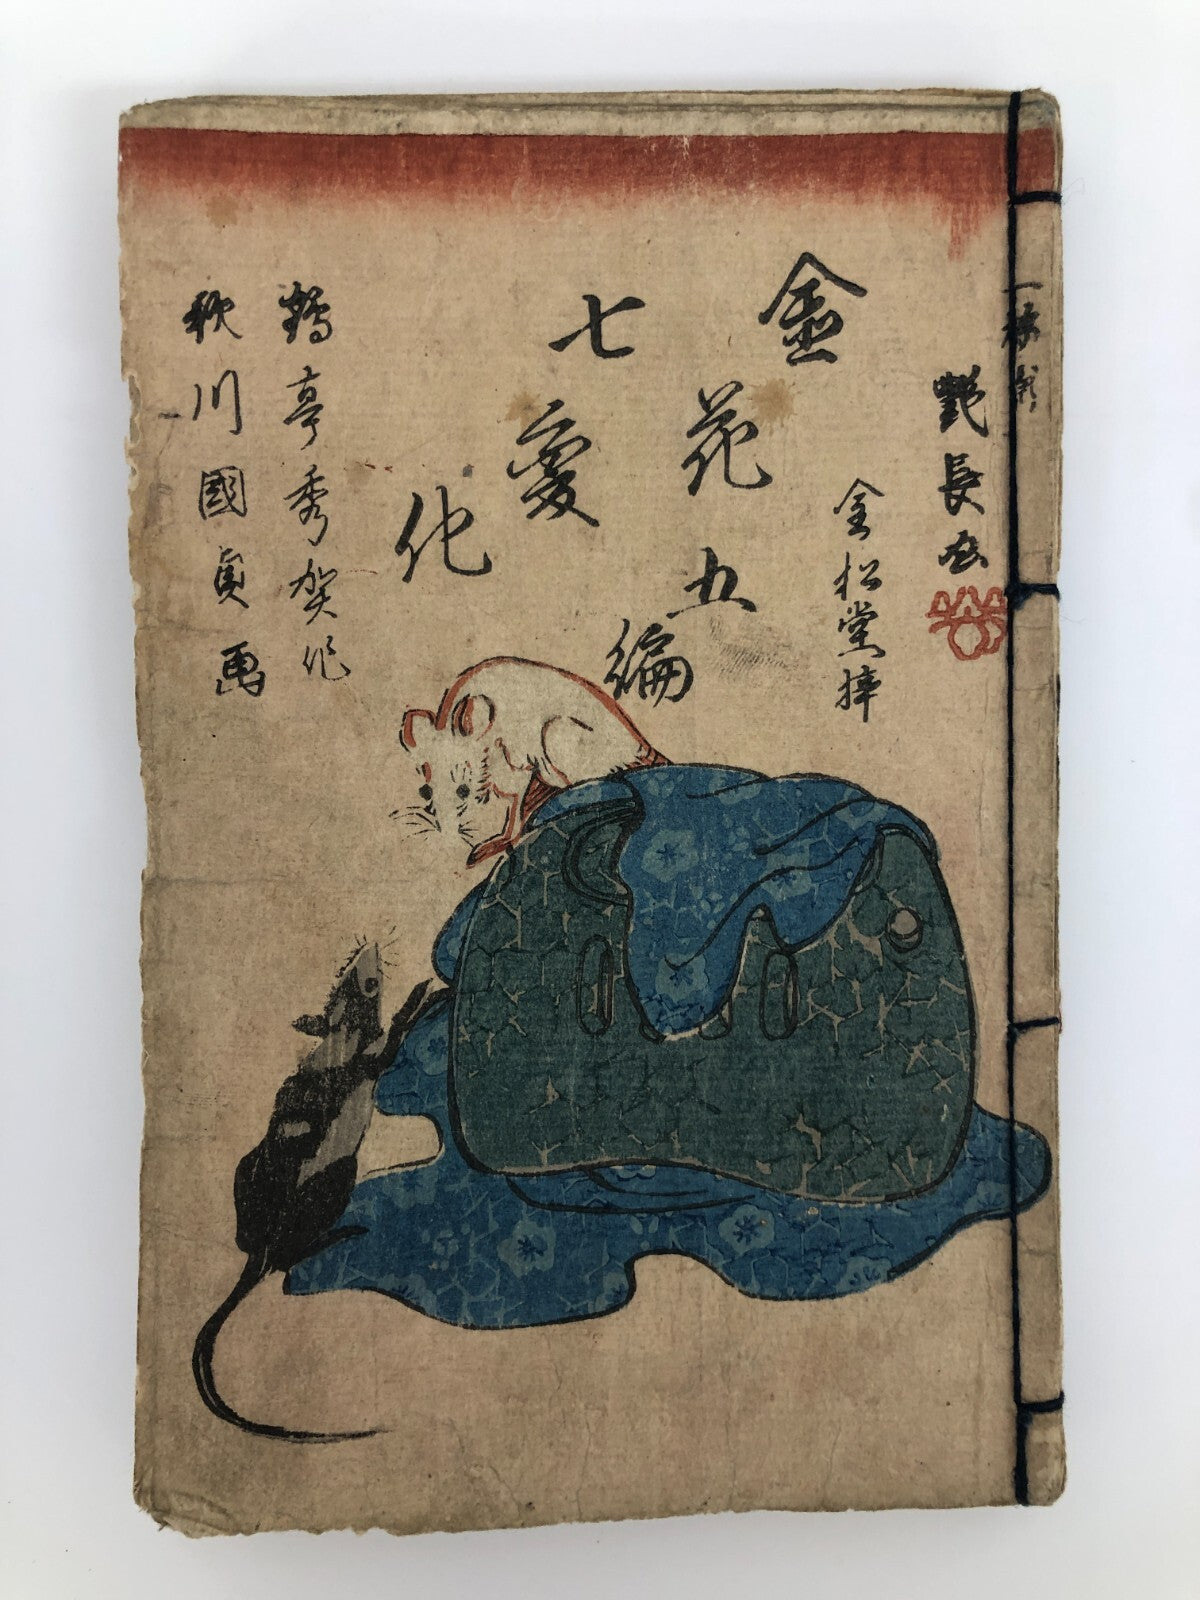 艶長画
金松堂梓
金花
七変化
五編
鶴亭秀賀作
歌川國貞画